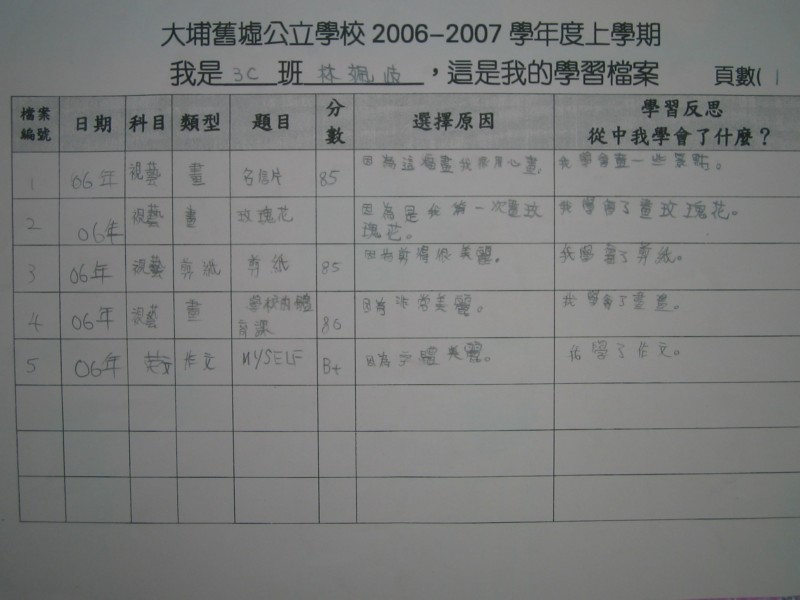 大埔舊墟公立學校 2006-2007 學年度上學期
我是 3C 班 林 岐 ,這是我的學習檔案 頁數( 1
檔案編號 日期 科目 類型 題目 分數 選擇原因 學習反思 從中我學會了什麼?
1 06年 視藝 畫 名信片 85 因為這幅畫我 用心畫, 我學會畫一些景點。
2 06年 視藝 畫 玫瑰花 因為是我第一次畫玫
瑰花。 我學會了畫玫瑰花。
3 06年 視藝 剪紙 剪紙 85 因為剪得很美麗。 我學會了剪紙。
4 06年 視藝 畫 學校的體
育課 86 因為非常美麗。 我學會了畫畫。
5 06年 英文 作文 MYSELF B+ 因為字體美麗。 學了作文。